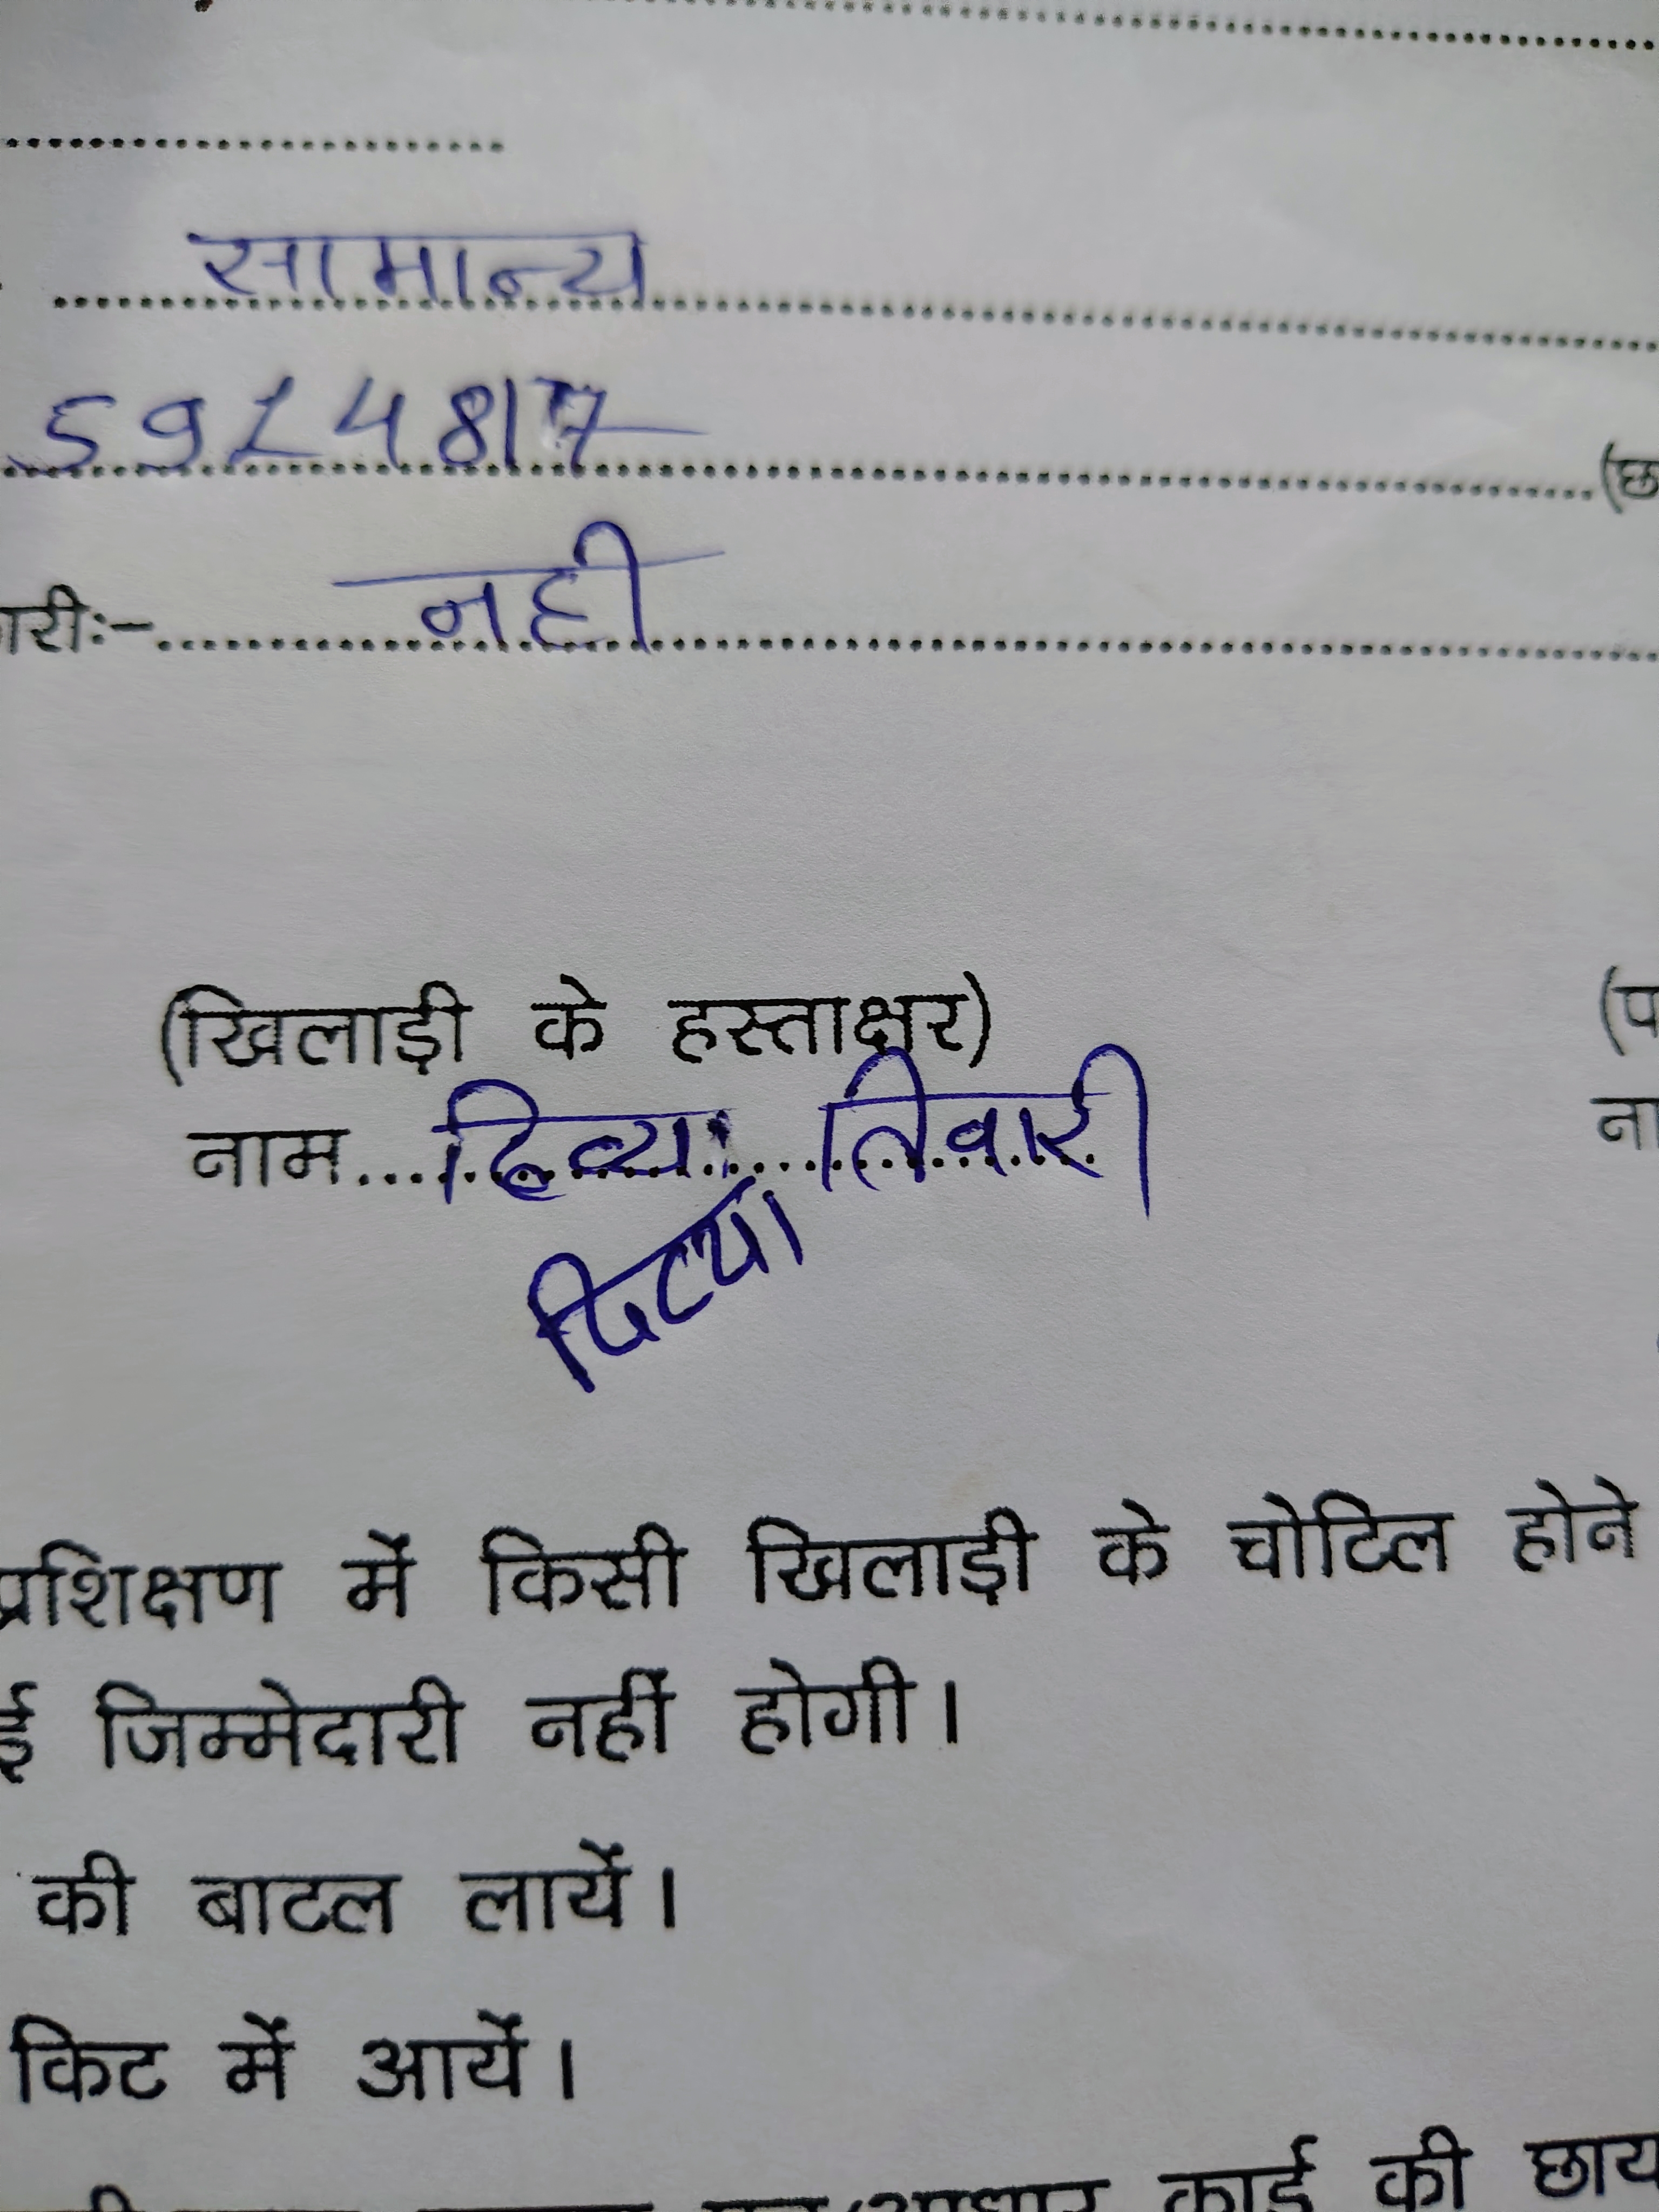 सामान्य
5914817
(छ
ारीः- नही
(खिलाड़ी के हस्ताक्षर)
(प
नाम दिव्या तिवारी
ना
दिव्या
प्रशिक्षण में किसी खिलाड़ी के चोटिल होने
ई जिम्मेदारी नहीं होगी।
की बाटल लायें।
किट में आयें।
कार्ड की छाय